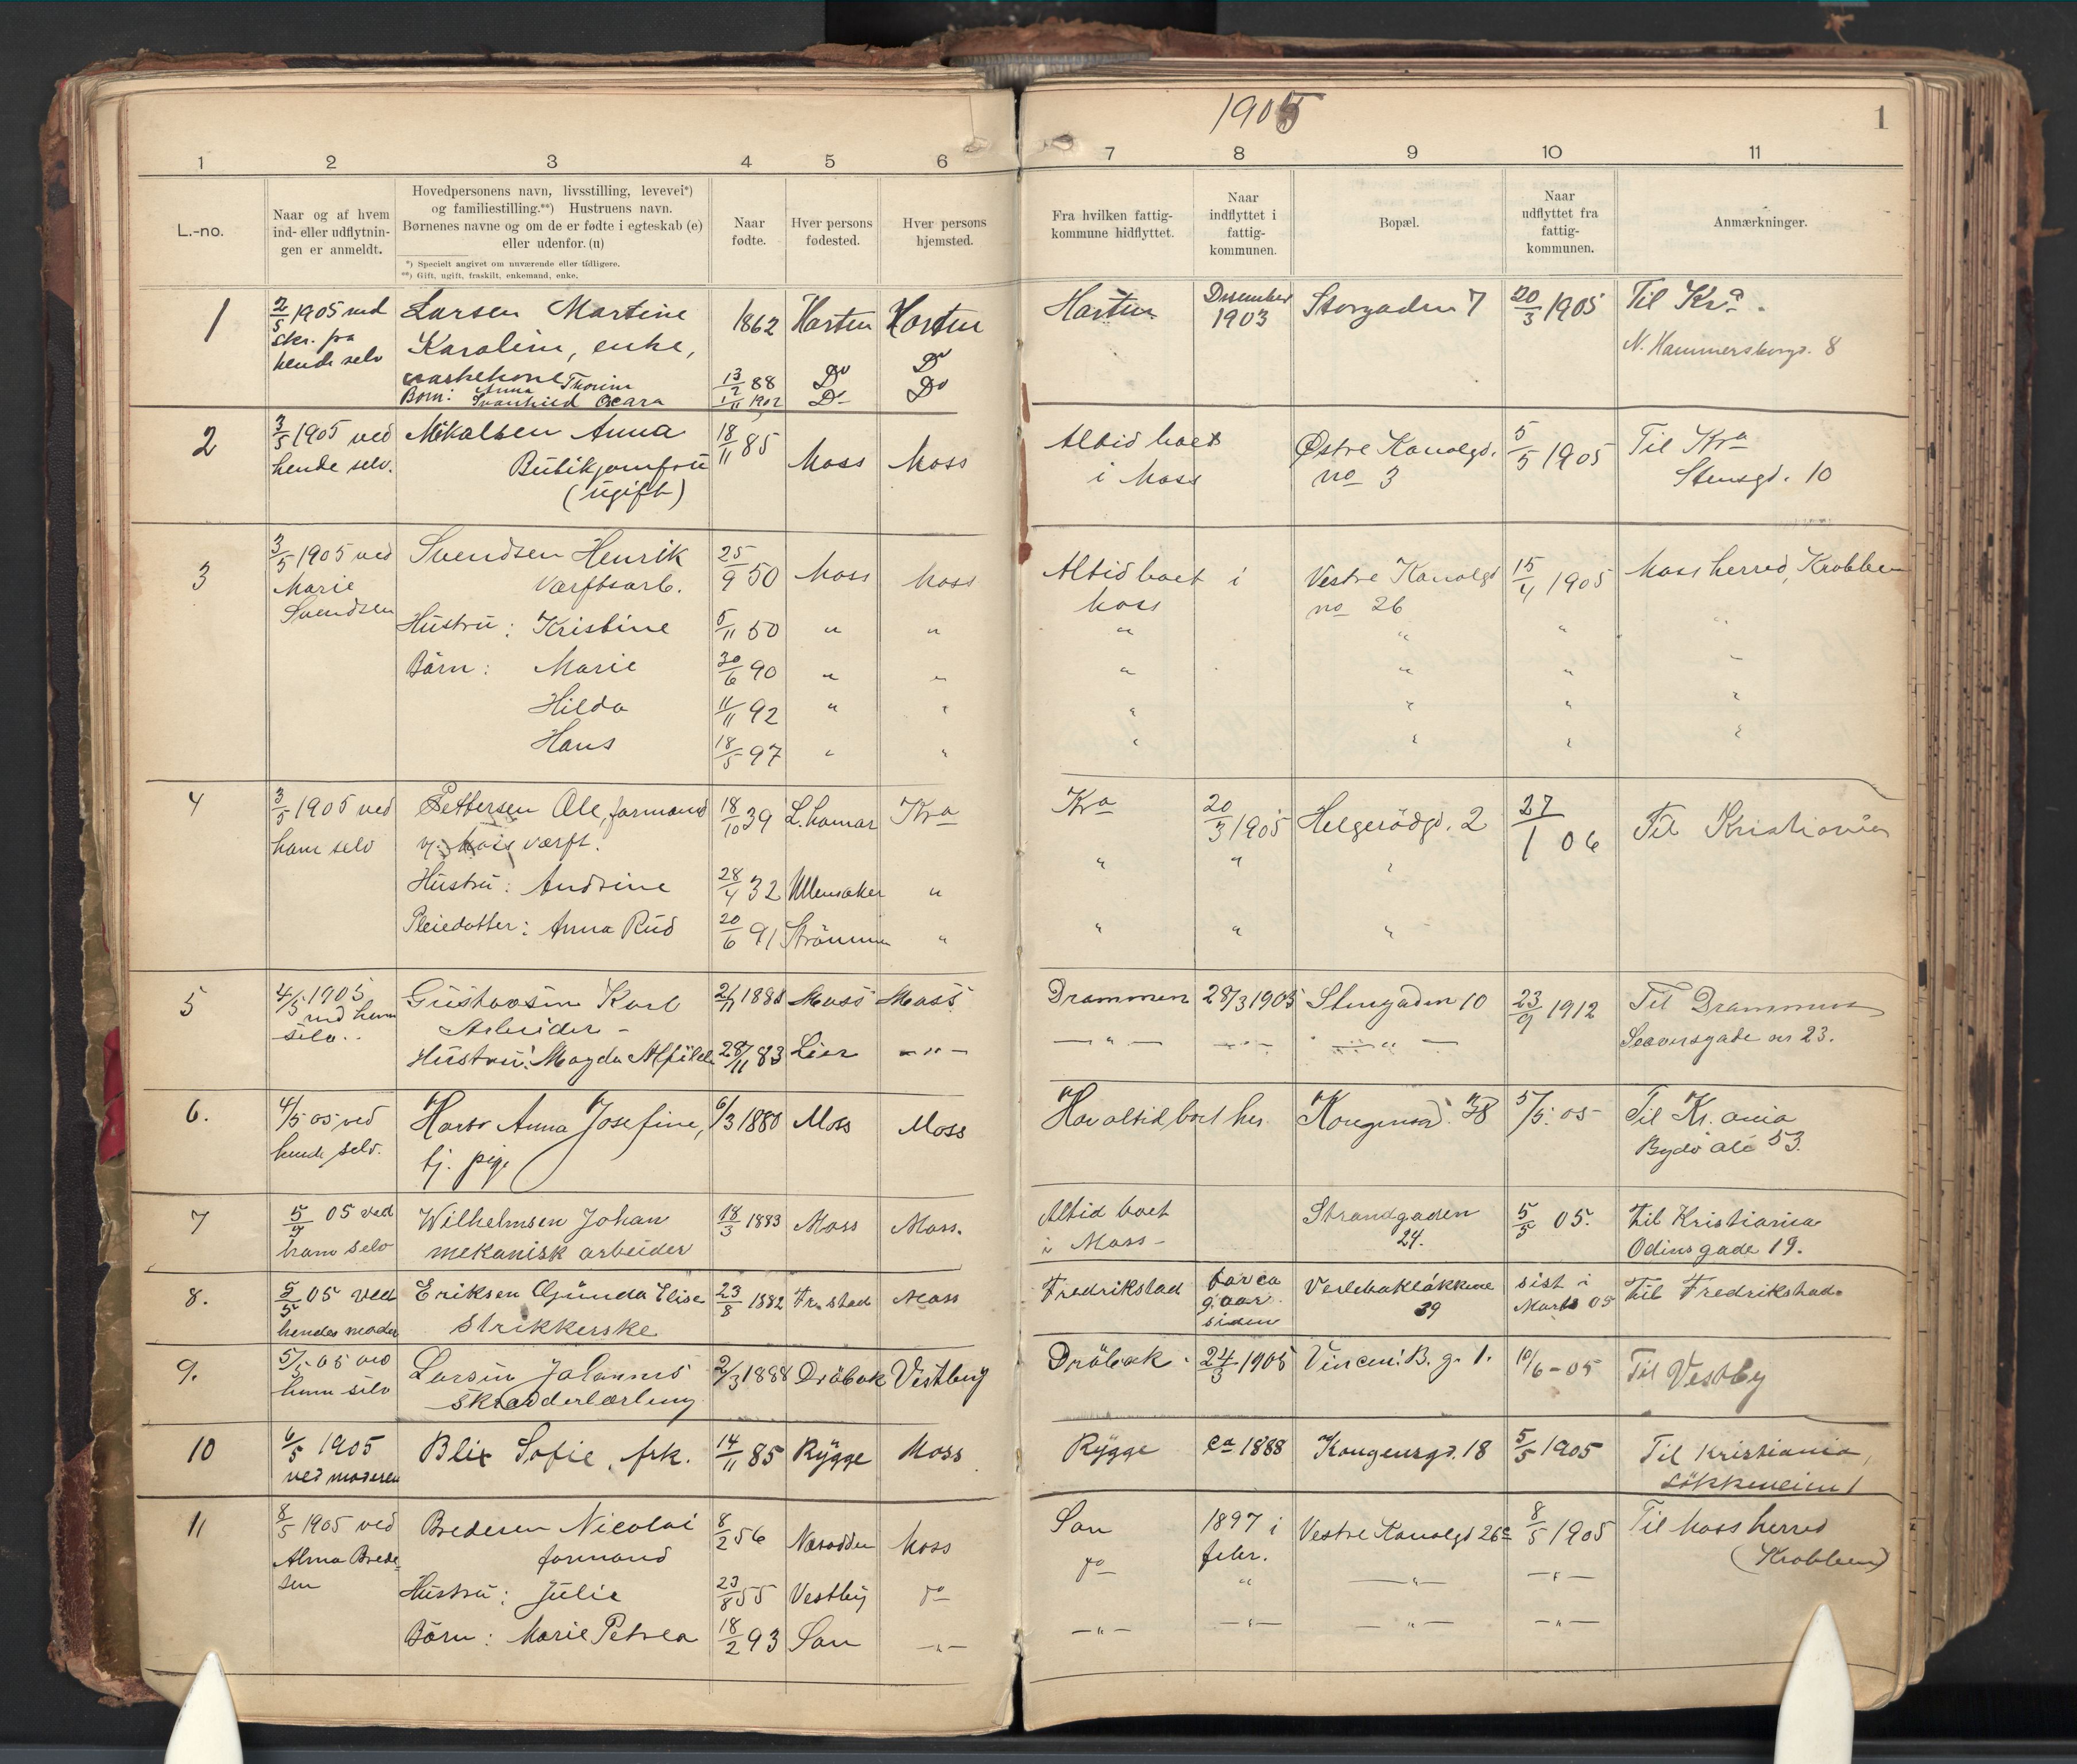 1905
1
1 2 3 4 5 6 7 8 9 10 11
L.-no.
Naar og af hvem
ind- eller udflytnin-
gen er anmeldt.
Hovedpersonens navn, livsstilling, levevei*)
og familiestilling.**) Hustruens navn.
Børnenes navne og om de er fødte i egteskab (e)
eller udenfor. (u)
*) Specielt angivet om nuværende eller tidligere.
**) Gift, ugift, fraskilt, enkemand, enke.
Naar
fødte.
Hver persons
fødested.
Hver persons
hjemsted.
Fra hvilken fattig-
kommune hidflyttet.
Naar
indflyttet i
fattig-
kommunen.
Bopæl.
Naar
udflyttet fra
fattig-
kommunen.
Anmærkninger.
1 2/5 1905 ved Larsen Martine 1862 Horten Horten Horten Desember 1903 Storgaden 7 20/3 1905 Til Kr.a
skr. fra Karoline, enke, N. Hammersborgg. 8
hende selv
vaskekone Thorine 13/2 88 Do Do
Born: Anna Svanhild Oscara 1/11 1902 Do Do
2 3/5 1905 ved Mikalsen Anna 18/11 85 Moss Moss Altid boet Østre Kanalgd. 5/5 1905 Til Kra
hende selv. Butikjomfru i Moss no 3 Stensgd. 10
(ugift)
3 3/5 1905 ved Svendsen Henrik 25/9 50 Moss Moss Altid boet i Vestre Kanalgd 15/4 1905 Moss herred, Krobben
Marie Værftsarb. Moss no 26
Svendsen Hustru: Kristine 5/11 50 " " " " " "
Börn: Marie 30/6 90 " " " " " "
Hilda 11/11 92 " " " " " "
Hans 18/5 97 " " " " " "
4 3/5 1905 ved Pettersen Ole, formand 18/10 39 L.hamar Kra Kra 20/3 1905 Helgerödgd. 2 27/1 06 Til Kristiania
ham selv v. Moss værft. " " "
Hustru: Andrine 28/4 32 Ullensaker "
Pleiedatter: Anna Rud 20/6 91 Strömmen " " " "
5 4/5 1905 Gustavsen Karl 1881 Moss Moss Drammen 28/3 1905 Stengaden 10 23/9 1912 Til Drammen
ved ham Arbeider - — " — — " — — " — gade nr 23.
selv.. Hustru: Magda 28/11 83 Lier — " —
6. 4/5 05 ved Anna Josefine, 6/3 1880 Moss Moss Har altid boet her. 5/5. 05 Til Kr.ania
hende selv. tj. pige Bygdö alé 53.
7 5/5 05 ved Wilhelmsen Johan 18/3 1883 Moss Moss. Altid boet Strandgaden 5/5 05. Til Kristiania
ham selv mekanisk arbeider i Moss - 24. Odinsgade 19.
8. 5/5 05 ved Eriksen Gunda Elise 23/8 1882 Fr.stad Moss Fredrikstad for ca Verlebakløkkene sist i Til Fredrikstad.
hendes moder Strikkerske 9 aar 39 Marts 05
siden
9. 5/5 05 ved Larsen Johannes 2/3 1888 Dröbak Vestby Dröbak. 24/3 1905 Vincent B. g. 1. 10/6 - 05 Til Vestby
ham selv skrædderlærling
10 6/5 1905 Blix Sofie, frk. 14/11 85 Rygge Moss Rygge ca 1888 Kongensgd. 18 5/5 1905 Til Kristiania,
ved moderen
11 8/5 1905 ved Bredesen Nicolai 8/2 56 Næsodden Moss Son 1897 i Vestre Kanalgd 26 8/5 1905 Til Moss herred
Alma Brede- formand do febr. (Krobben)
sen Hustru: Julie 23/8 55 Vestby do " — " — — " —
Börn: Marie Petrea 18/2 93 Son — " — — " — — " — — " — — " —